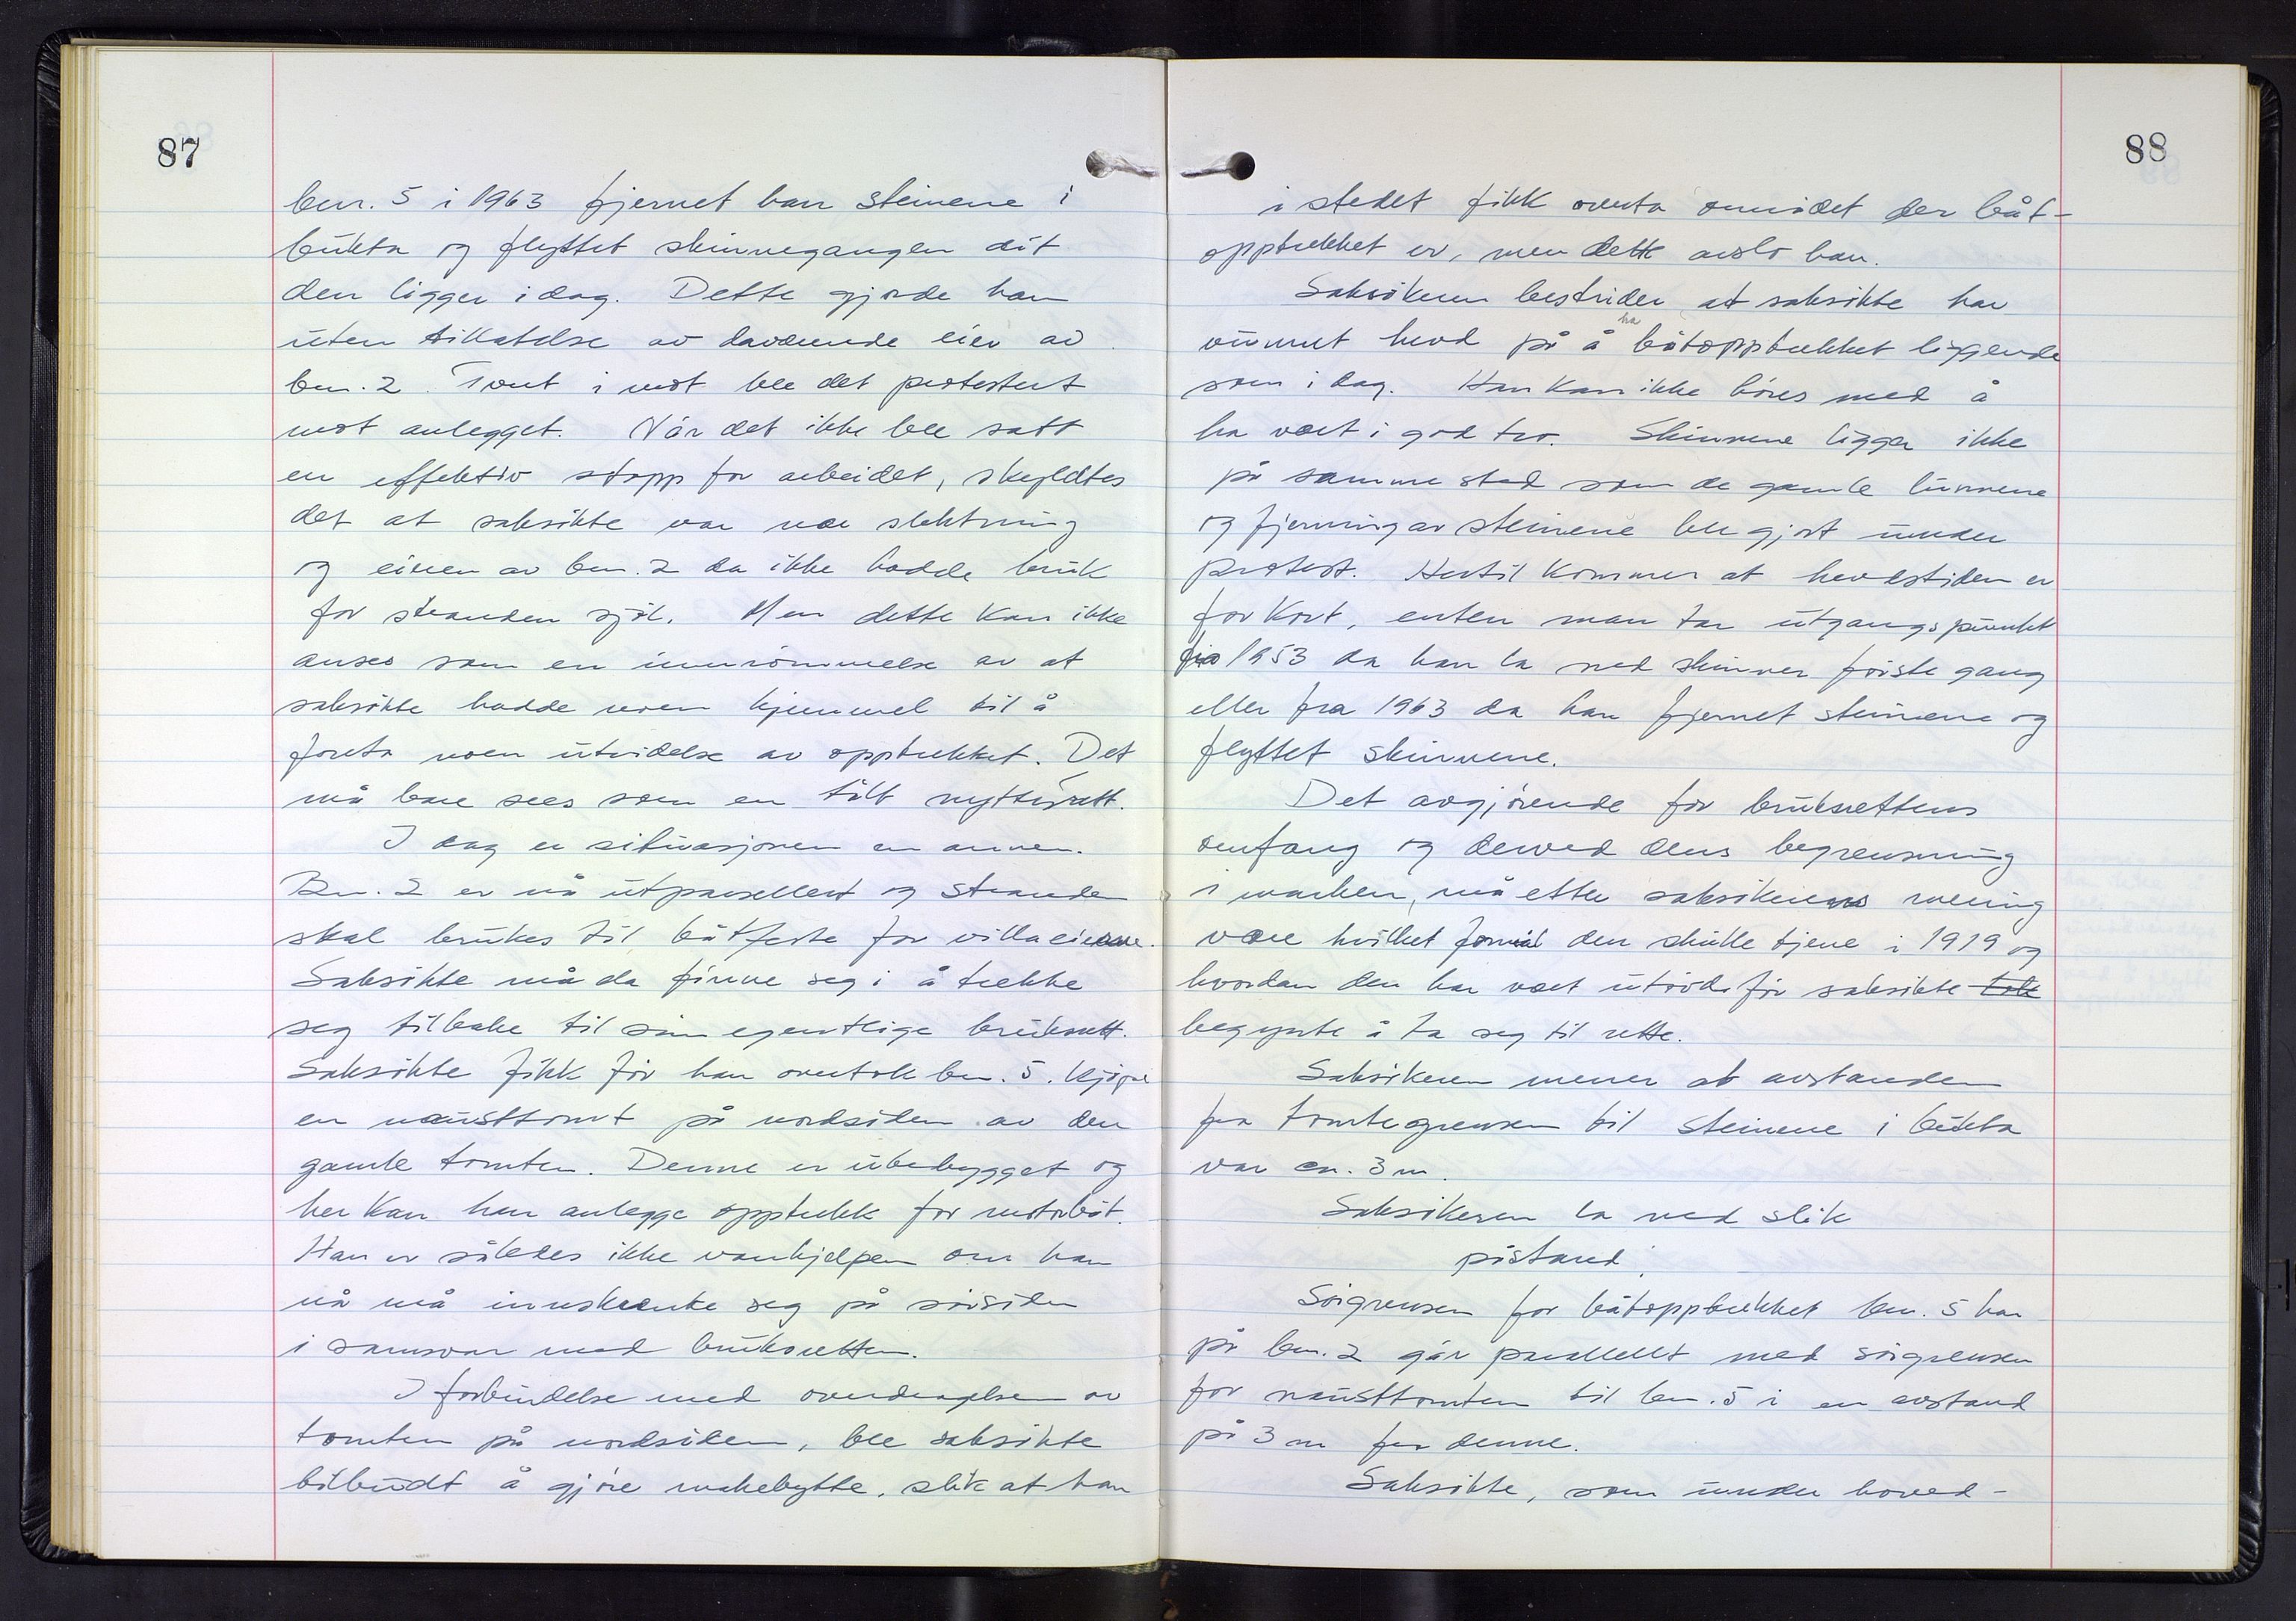 87
bnr. 5 i 1963 fjernet han steinene i
bukta og flyttet skinnegangen dit
den ligger idag. Dette gjorde han
uten tillatelse av daværende eier av
bnr. 2. Tvert i mot ble det protestert
mot anlegget. Når det ikke ble satt
en effektiv stopp for arbeidet, skyldtes
det at saksökte var nær slektning
og eieren av bnr. 2 da ikke hadde bruk
for stranden sjöl. Men dette kan ikke
anses som en innrömmelse av at
saksökte hadde noen hjemmel til å
foreta noen utvidelse av opptrekket. Det
må bare sees som en tålt nyttesrett.
I dag er situasjonen en annen.
Bnr. 2 er nå utparsellert og stranden
skal brukes til båtfeste for villaeierne.
Saksökte må da finne seg i å trekke
seg tilbake til sin egentlige bruksrett.
Saksökte fikk för han overtok bnr. 5. kjöpe
en nausttomt på nordsiden av den
gamle tomten. Denne er ubebygget og
her kan han anlegge opptrekk for motorbåt.
Han er således ikke vanhjelpen om han
nå må innskrenke seg på sörsiden
i samsvar med bruksretten.
I forbindelse med overdragelsen av
tomten på nordsiden, ble saksökte
tilbudt å gjöre makebytte, slik at han
88
i stedet fikk overta området der båt-
opptrekket er, men dette avslo han.
Saksökeren bestrider at saksökte har
ha
vunnet hevd på å båtopptrekket liggende
som i dag. Han kan ikke höres med å
ha vært i god tro. Skinnene ligger ikke
på samme sted som de gamle lunnene
og fjerning av steinene ble gjort under
protest. Hertil kommer at hevdstiden er
for kort, enten man tar utgangspunkt
fra 1953 da han la ned skinner förste gang
eller fra 1963 da han fjernet steinene og
flyttet skinnene.
Det avgjörende for bruksrettens
omfang og derved dens begrensning
i marken, må etter saksökerens mening
være hvilket formål den skulle tjene i 1919 og
hvordan den har vært utövd för saksökte tok
begynte å ta seg til rette.
Saksökeren mener at avstanden
fra tomtegrensen til steinene i bukta
var ca. 3 m.
Saksökeren la ned slik
påstand:
Sörgrensen for båtopptrekket bnr. 5 har
på bnr. 2 går parallellt med sörgrensen
for nausttomten til bnr. 5 i en avstand
på 3 m fra denne.
Saksökte, som under hoved-